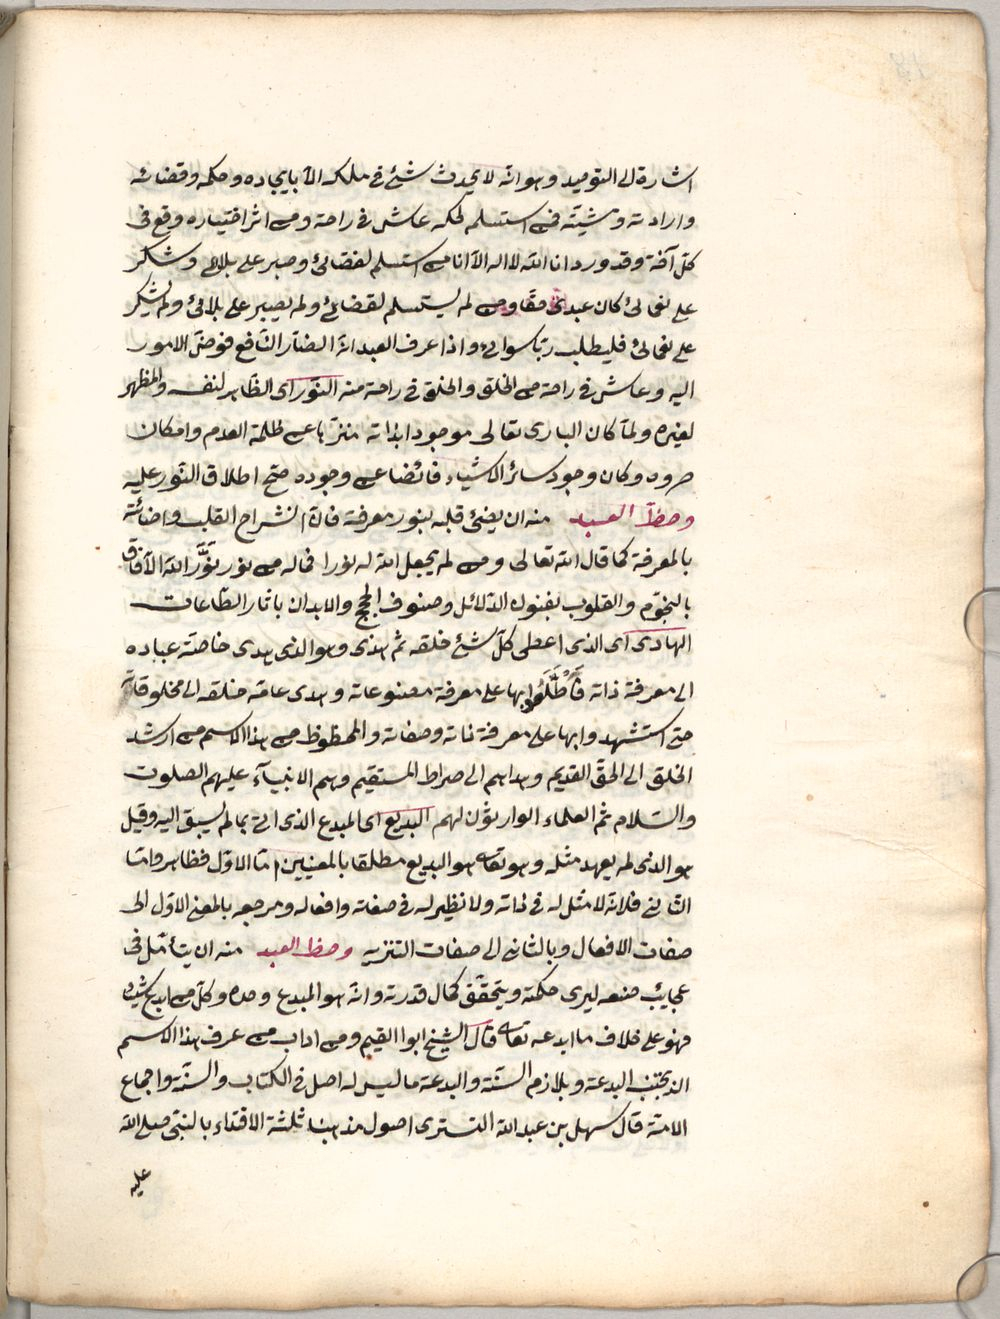 اشارة الى التوحيد وهو انه لا يحدث شئ فى ملكه الا بايجاده وحكمه وقضائه
وارادته ومشيته فمن استسلم لحكمه عاش فى راحة ومن اثر اختياره وقع فى
كل آفة وقد ورد انا الله لا اله الا انا من استسلم لقضائى وصبر على بلائى وشكر
على نعمائى كان عبدى حقا ومن لم يستسلم لقضائى ولم يصبر على بلائى ولم يشكر
على نعمائى فليطلب ربا سوائى واذا عرف العبد انه الضار النافع فوض الامور
اليه وعاش فى راحة من الخلق والخلق فى راحة منه النور اى الظاهر لنفسه والمظهر
لغيره ولما كان البارى تعالى موجودا بذاته منزها عن ظلمة العدم وامكان
طروه وكان وجود سائر الاشياء فائضا عن وجوده صح اطلاق النور عليه
وحظ العبد منه ان يضئ قلبه بنور معرفة فانه انشراح القلب واضائته
بالمعرفة كما قال الله تعالى ومن لم يجعل الله له نورا فما له من نور نَوَّرَ الله الآفاق
بالنجوم والقلوب بفنون الدلائل وصنوف الحجج والابدان باثار الطاعات
الهادى اى الذى اعطى كل شئ خلقه ثم هدى وهو الذى هدى خاصة عباده
الى معرفة ذاته فَاطَّلَعُوا بها على معرفة مصنوعاته وهدى عامة خلقه الى مخلوقاته
حتى استشهدوا بها على معرفة ذاته وصفاته والمحظوظ من هذا الاسم من ارشد
الخلق الى الحق القديم وهداهم الى صراط المستقيم وهم الانبيآء عليهم الصلوت
والسلام ثم العلماء الوارثون لهم البديع اى المبدع الذى اتى بما لم يسبق اليه وقيل
هو الذى لم يعهد مثله وهو تعالى هو البديع مطلقا بالمعنيين اما الاول فظاهر واما
الثانى فلانه لا مثل له فى ذاته ولا نظير له فى صفته وافعاله ومرجعه بالمعنى الاول الى
صفات الافعال وبالثانى الى صفات التنزيه وحظ العبد منه ان يتأمل فى
عجايب صنعه ليرى حكمته ويتحقق كمال قدرته وانه هو المبدع وحده وكل من ابدع شيئا
فهو على خلاف ما ابدعه تعالى قال الشيخ ابوا القيم ومن اداب من عرف هذا الاسم
ان يجتنب البدعة ويلازم السنة والبدعة ما ليس له اصل فى الكتاب والسنة واجماع
الامة قال سهل بن عبد الله التسترى اصول مذهبنا ثلثة الاقتداء بالنبى صلى الله
عليه